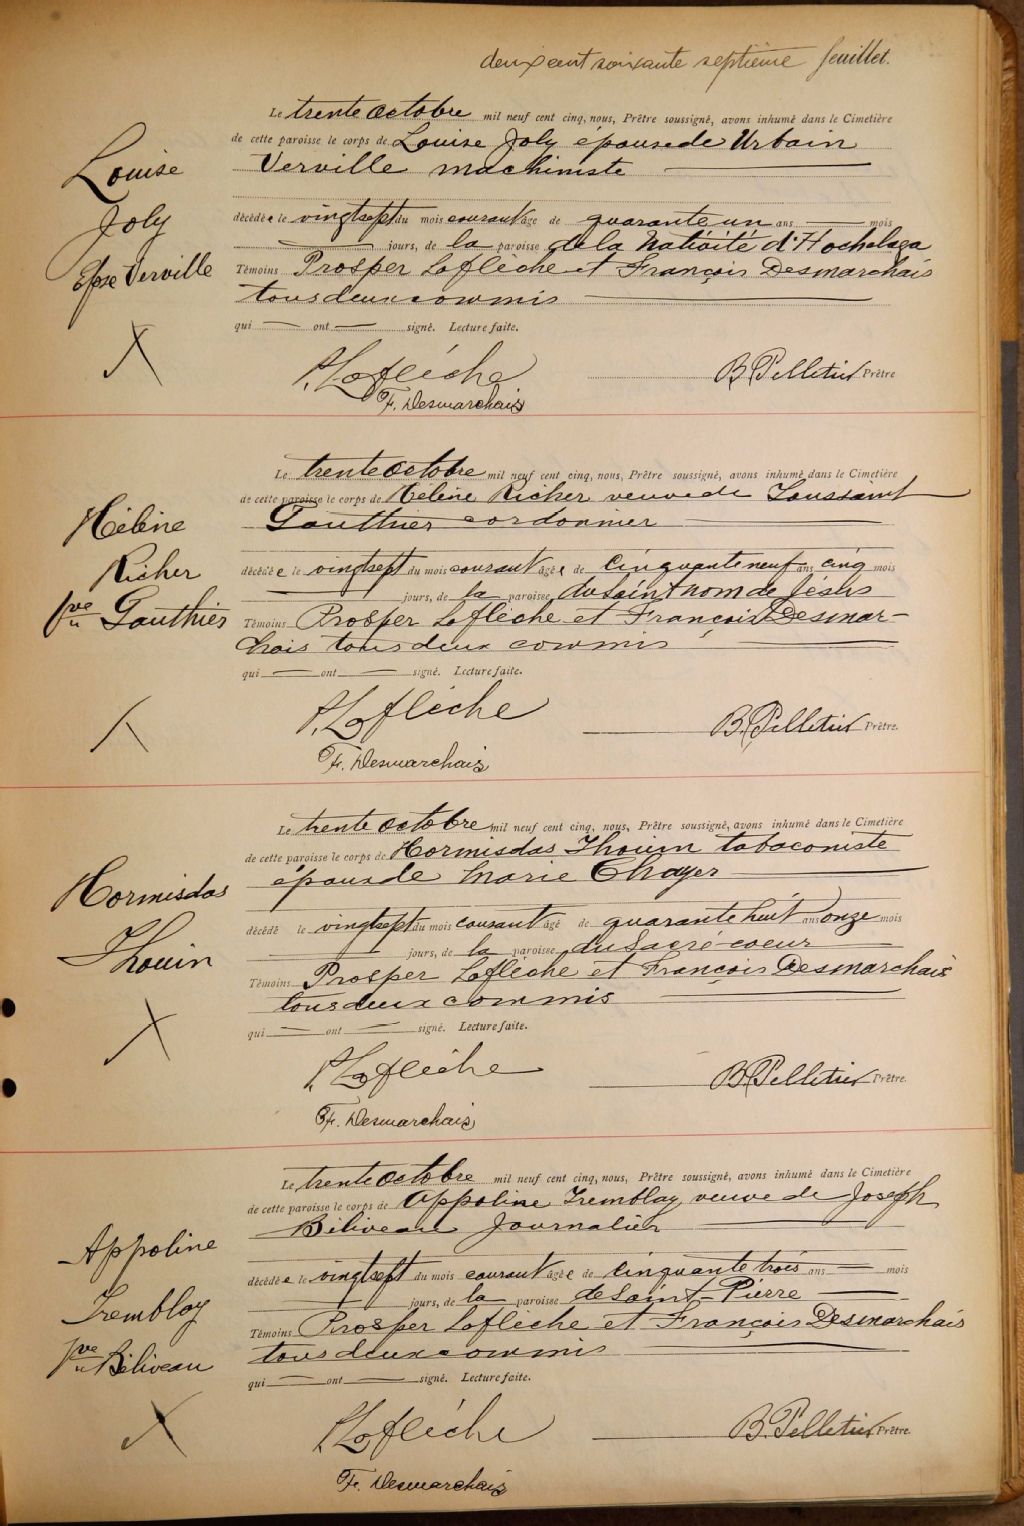 deux cent soixante septième feuillet.
Le trente octobre mil neuf cent cinq, nous, Prêtre soussigné, avons inhumé dans le Cimetière
de cette paroisse le corps de Louise Joly épouse de Urbain
Verville machiniste
Louise
Joly
Epse Verville
décédée le vingtsept du mois courant âge de quarante un ans mois
jours, de la paroisse de la Nativité d'Hochelaga
Témoins Prosper Laflèche et François Desmarchais
tous deux commis
qui ont signé. Lecture faite.
P. Laflèche
B. Pelletier Prêtre
F. Desmarchais
Le trente octobre mil neuf cent cinq, nous, Prêtre soussigné, avons inhumé dans le Cimetière
de cette paroisse le corps de Hélène Richer veuve de Toussaint
Gauthier cordonnier
Hélène
Richer
Vve Gauthier
décédée le vingtsept du mois courant âgée de cinquante neuf ans cinq mois
jours, de la paroisse du Saint nom de Jésus
Témoins Prosper Laflèche et François Desmar-
chais tous deux commis
qui ont signé. Lecture faite.
P. Laflèche
B. Pelletier Prêtre.
F. Desmarchais
Le trente octobre mil neuf cent cinq, nous, Prêtre soussigné, avons inhumé dans le Cimetière
de cette paroisse le corps de Hormisdas Thouin tabaconiste
époux de Marie Chayer
Hormisdas
Thouin
décédé le vingtsept du mois courant âgé de quarante huit ans onze mois
jours, de la paroisse du Sacré-coeur
Témoins Prosper Laflèche et François Desmarchais
tous deux commis
qui ont signé. Lecture faite.
P. Laflèche
B. Pelletier Prêtre.
F. Desmarchais
Le trente octobre mil neuf cent cinq, nous, Prêtre soussigné, avons inhumé dans le Cimetière
de cette paroisse le corps de Appoline Tremblay veuve de Joseph
Béliveau Journalier
Appoline
Tremblay
Vve Béliveau
décédée le vingtsept du mois courant âgée de cinquante trois ans mois
jours, de la paroisse de Saint-Pierre
Témoins Prosper Laflèche et François Desmarchais
tous deux commis
qui ont signé. Lecture faite.
P. Laflèche
B. Pelletier Prêtre.
F. Desmarchais